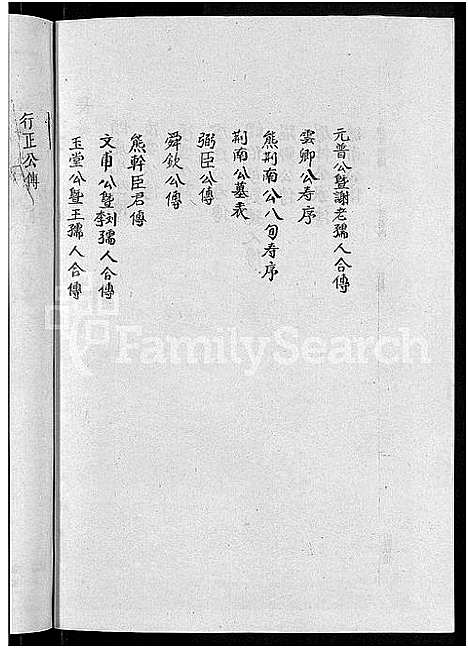 元普公暨謝老孺人合傳
雲卿公寿序
熊荆南公八旬寿序
荆南公墓表
弼臣公傳
舜欽公傳
熊幹臣君傳
文甫公暨李刘孺人合傳
玉堂公暨王孺人合傳
行正公傳
FamilySearch